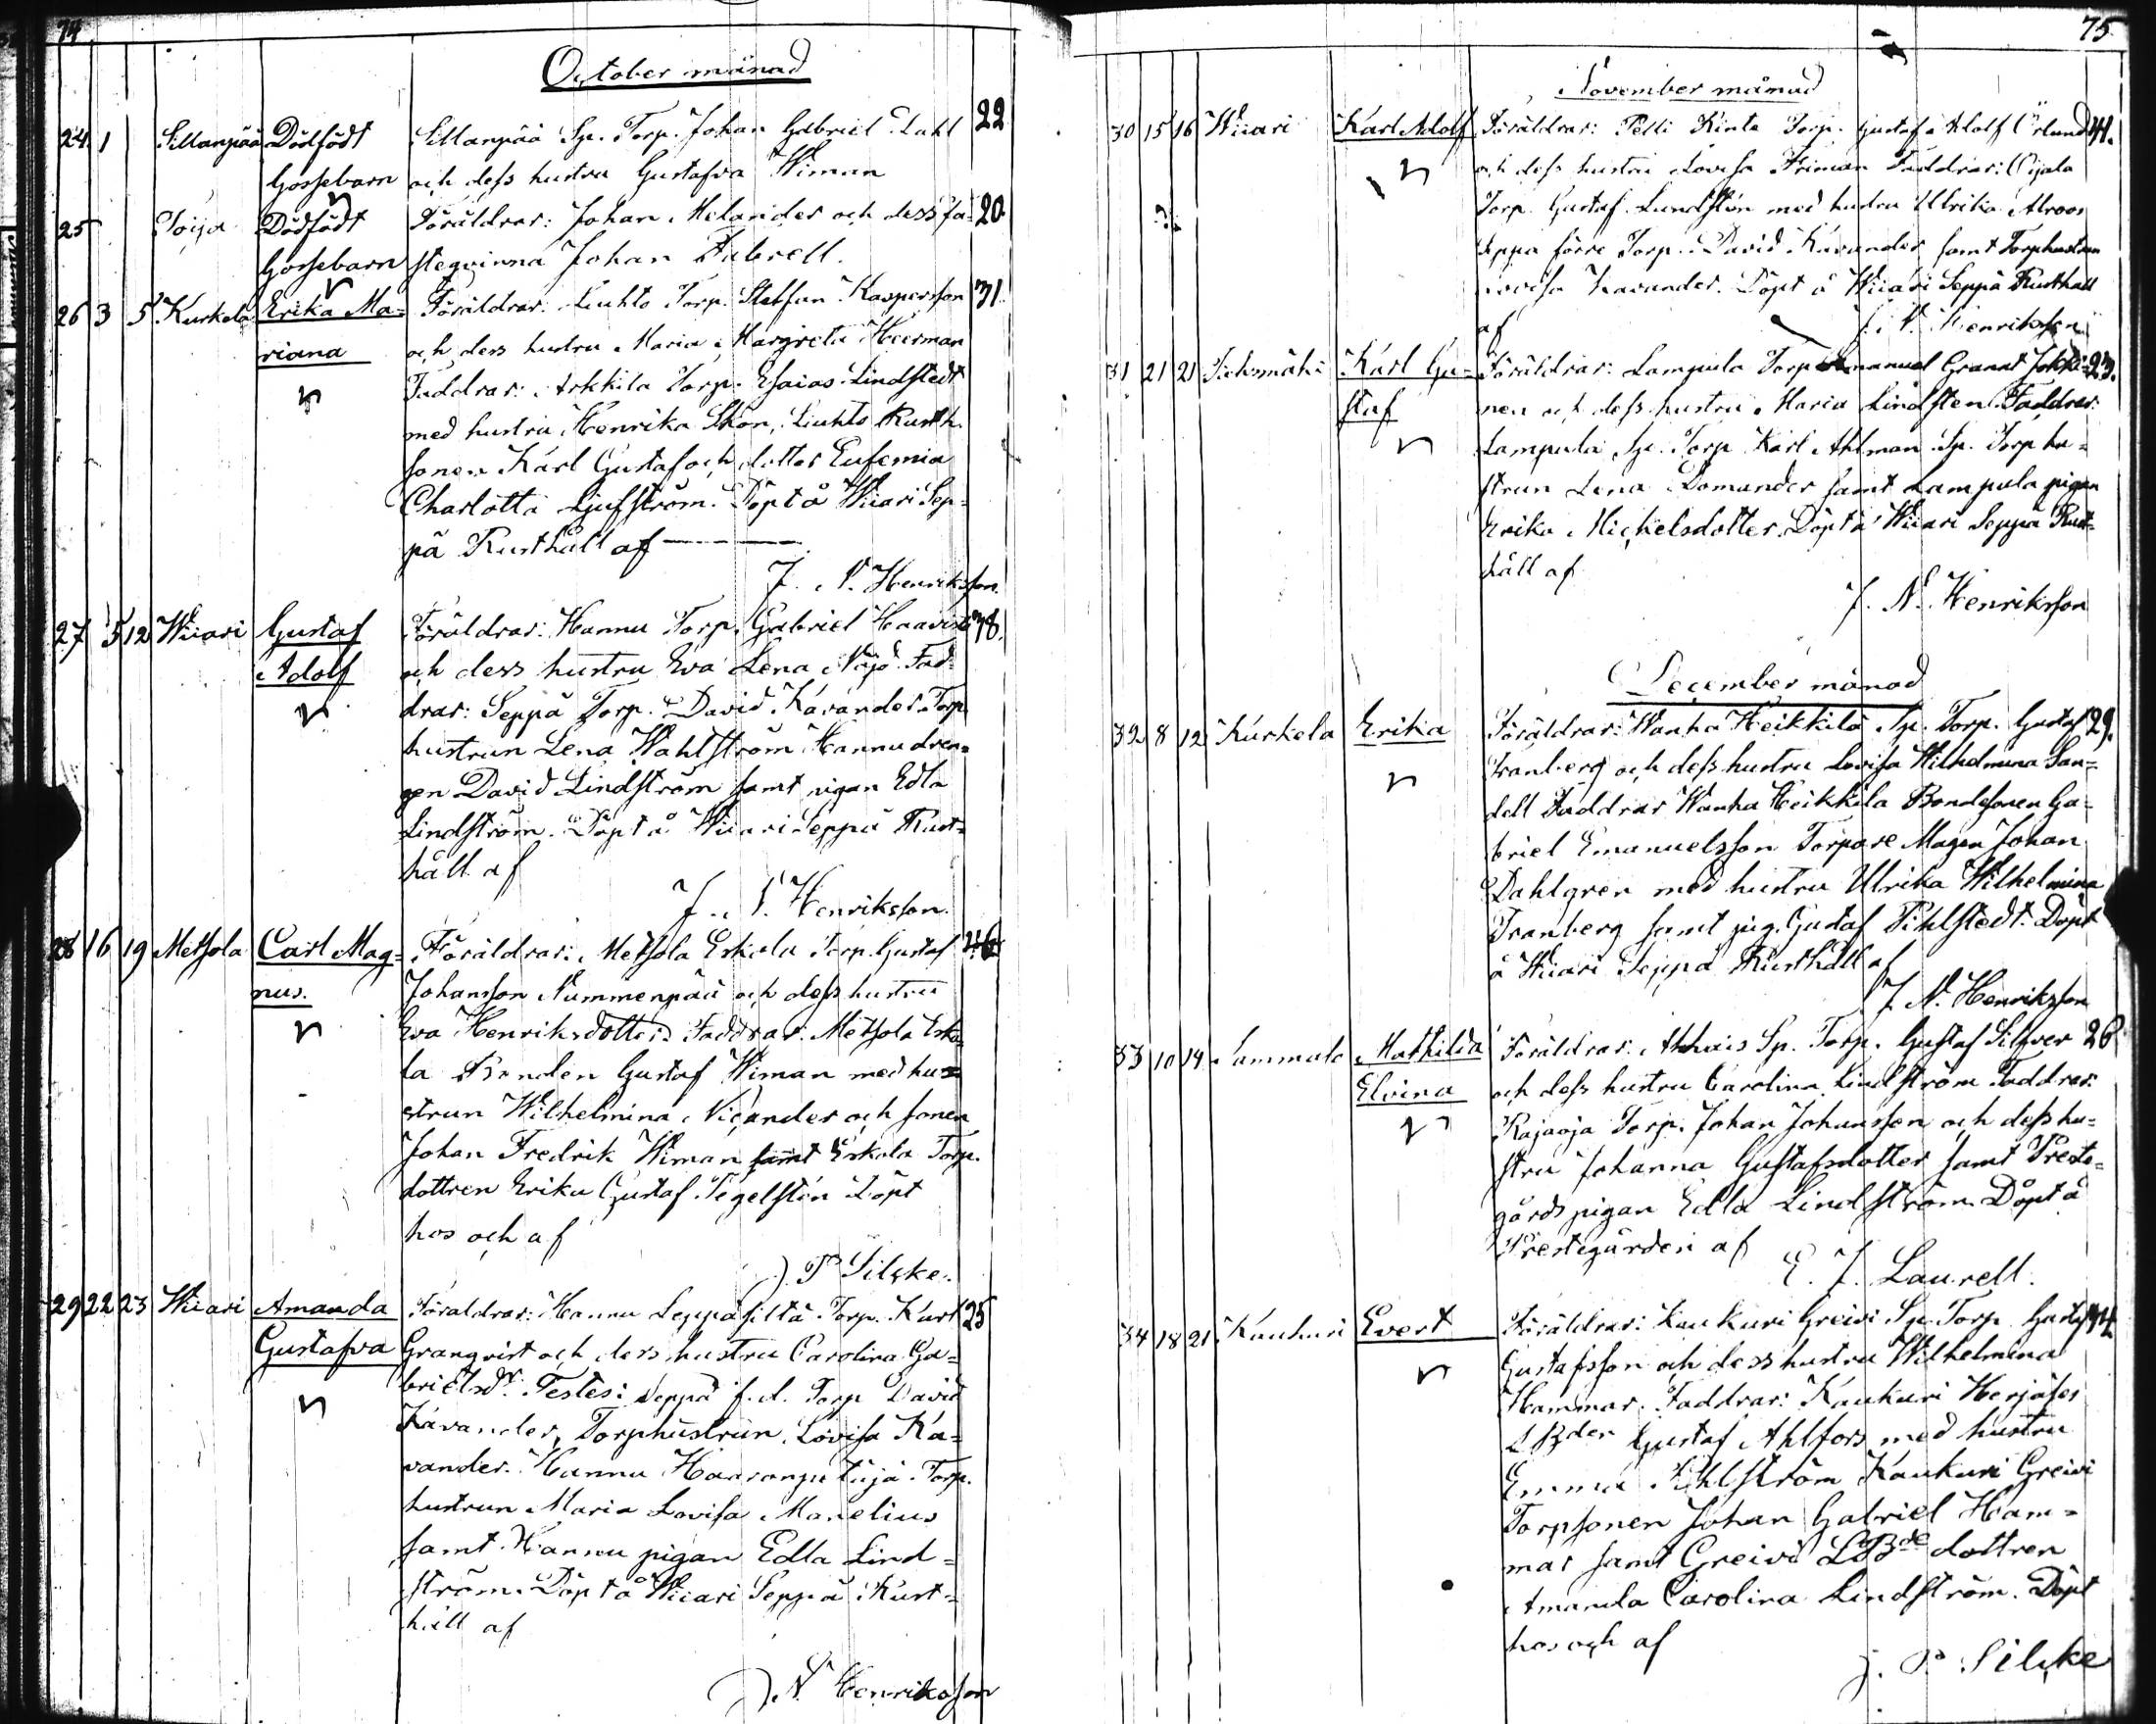 74
October månad
24 1 Sillanpää Dödfödt Sillanpää Sp. Torp. Johan Gabriel Dahl 22
Gossebarn och dess hustru Gustafva Wiman
25 Toija Dödfödt Föräldrar: Johan Melander och dess fä= 20
Gossebarn steqvinna Johan Fabrell.
26 3 5 Kurkela Erika Ma= Föräldrar: Liuhto Torp. Staffan Kaspersson 31
riana och dess hustru Maria Margreta Heerman
Faddrar: Arkkila Torp. Esaias Lindstedt
med hustru Henrika Skön, Liuhto Rusth.
sonen Karl Gustaf och dotter Eufemia
Charlotta Ljufström. Döpt å Wiiari Sep=
pä Rusthåll af
J. N. Henriksson.
27 5 12 Wiiari Gustaf Föräldrar: Hannu Torp. Gabriel Haavisto 38.
Adolf och dess hustru Eva Lena Nöjd. Fad=
drar: Seppä Torp. David Kavander Torp.
hustrun Lena Wahlström Hannu dren=
gen David Lindström samt pigan Edla
Lindström. Döpt å Wiiari Seppä Rust=
håll af
J. N. Henriksson.
28 16 19 Metsola Carl Mag= Föräldrar: Metsola Eskola Torp. Gustaf
nus. Johansson Nummenpää och dess hustru
Eva Henriksdotter. Faddrar: Metsola Esko=
la Bonden Gustaf Wiman med hu=
strun Wilhelmina Nicander och sonen
Johan Fredrik Wiman samt Eskola Torp.
dottren Erika Gustaf Tegelstén Döpt
hos och af
J. P. Silcke.
29 22 23 Wiiari Amanda Föräldrar: Hannu Leppäsilta Torp. Karl 25
Gustafva Granqvist och dess hustru Carolina Ga=
brielsdr. Testes: Seppä f.d. Torp David
Kavander, Torphustrun Lovisa Ka=
vander. Hannu Torp.
hustrun Maria Lovisa Manelius
samt Hannu pigan Edla Lind=
ström. Döpt å Wiiari Seppä Rust=
håll af
J. N. Henriksson
75
November månad
30 15 16 Wiiari Karl Adolf Föräldrar: Pelli Kinta Torp. Gustaf Adolf Örlund 41.
och dess hustru Lovisa Friman Faddrar: Ojala
Torp. Gustaf Lundstén med hustru Ulrika Alroos
Seppä förre Torp. David Kavander samt Torphustrun
Lovisa Kavander. Döpt å Wiiari Seppä Rusthåll
af J. N. Henriksson
31 21 21 Karl Gu= Föräldrar: Lampula Torp Emanuel Granat 23.
staf nen och dess hustru Maria Lindsten. Faddrar:
Lampula Sp. Torp Karl Ahlman Sp. Torp hu=
strun Lena Domander samt Lampula pigan
Erika Michelsdotter. Döpt å Wiiari Seppä Rust=
håll af
J. N. Henriksson
December månad
32 8 12 Kurkela Erika Föräldrar: Wanha Heikkilä Sp. Torp. Gustaf 29.
Tranberg och dess hustru Lovisa Wilhelmina San=
dell Faddrar Wanha Heikkilä Bondesonen Ga=
briel Emanuelsson Torpare Magen Johan
Dahlgren med hustru Ulrika Wilhelmina
Tranberg samt pig. Gustaf Pihlstedt. Döpt
å Wiiari Seppä Rusthåll af
J. N. Henriksson
33 10 14 Sammalo Mathilda Föräldrar: Sp. Torp. Gustaf Silfver 26
Elvina och dess hustru Carolina Lindström Faddrar:
Rajaoja Torp. Johan Johansson och dess hu=
stru Johanna Gustafsdotter samt Preste=
gårds pigan Edla Lindström. Döpt å
Prestegården af
E. J. Laurell.
34 18 21 Kaukuri Evert Föräldrar: Kaukuri Greivi Sp. Torp Gustaf
Gustafsson och dess hustru Wilhelmina
Hammar. Faddrar: Kaukuri
LBden Gustaf Ahlfors med hustru
Emma Pihlström Kaukuri Greivi
Torpsonen Johan Gabriel Ham=
mar samt Greivi LBde dottren
Amanda Carolina Lindström. Döpt
hos och af
J. P. Silcke